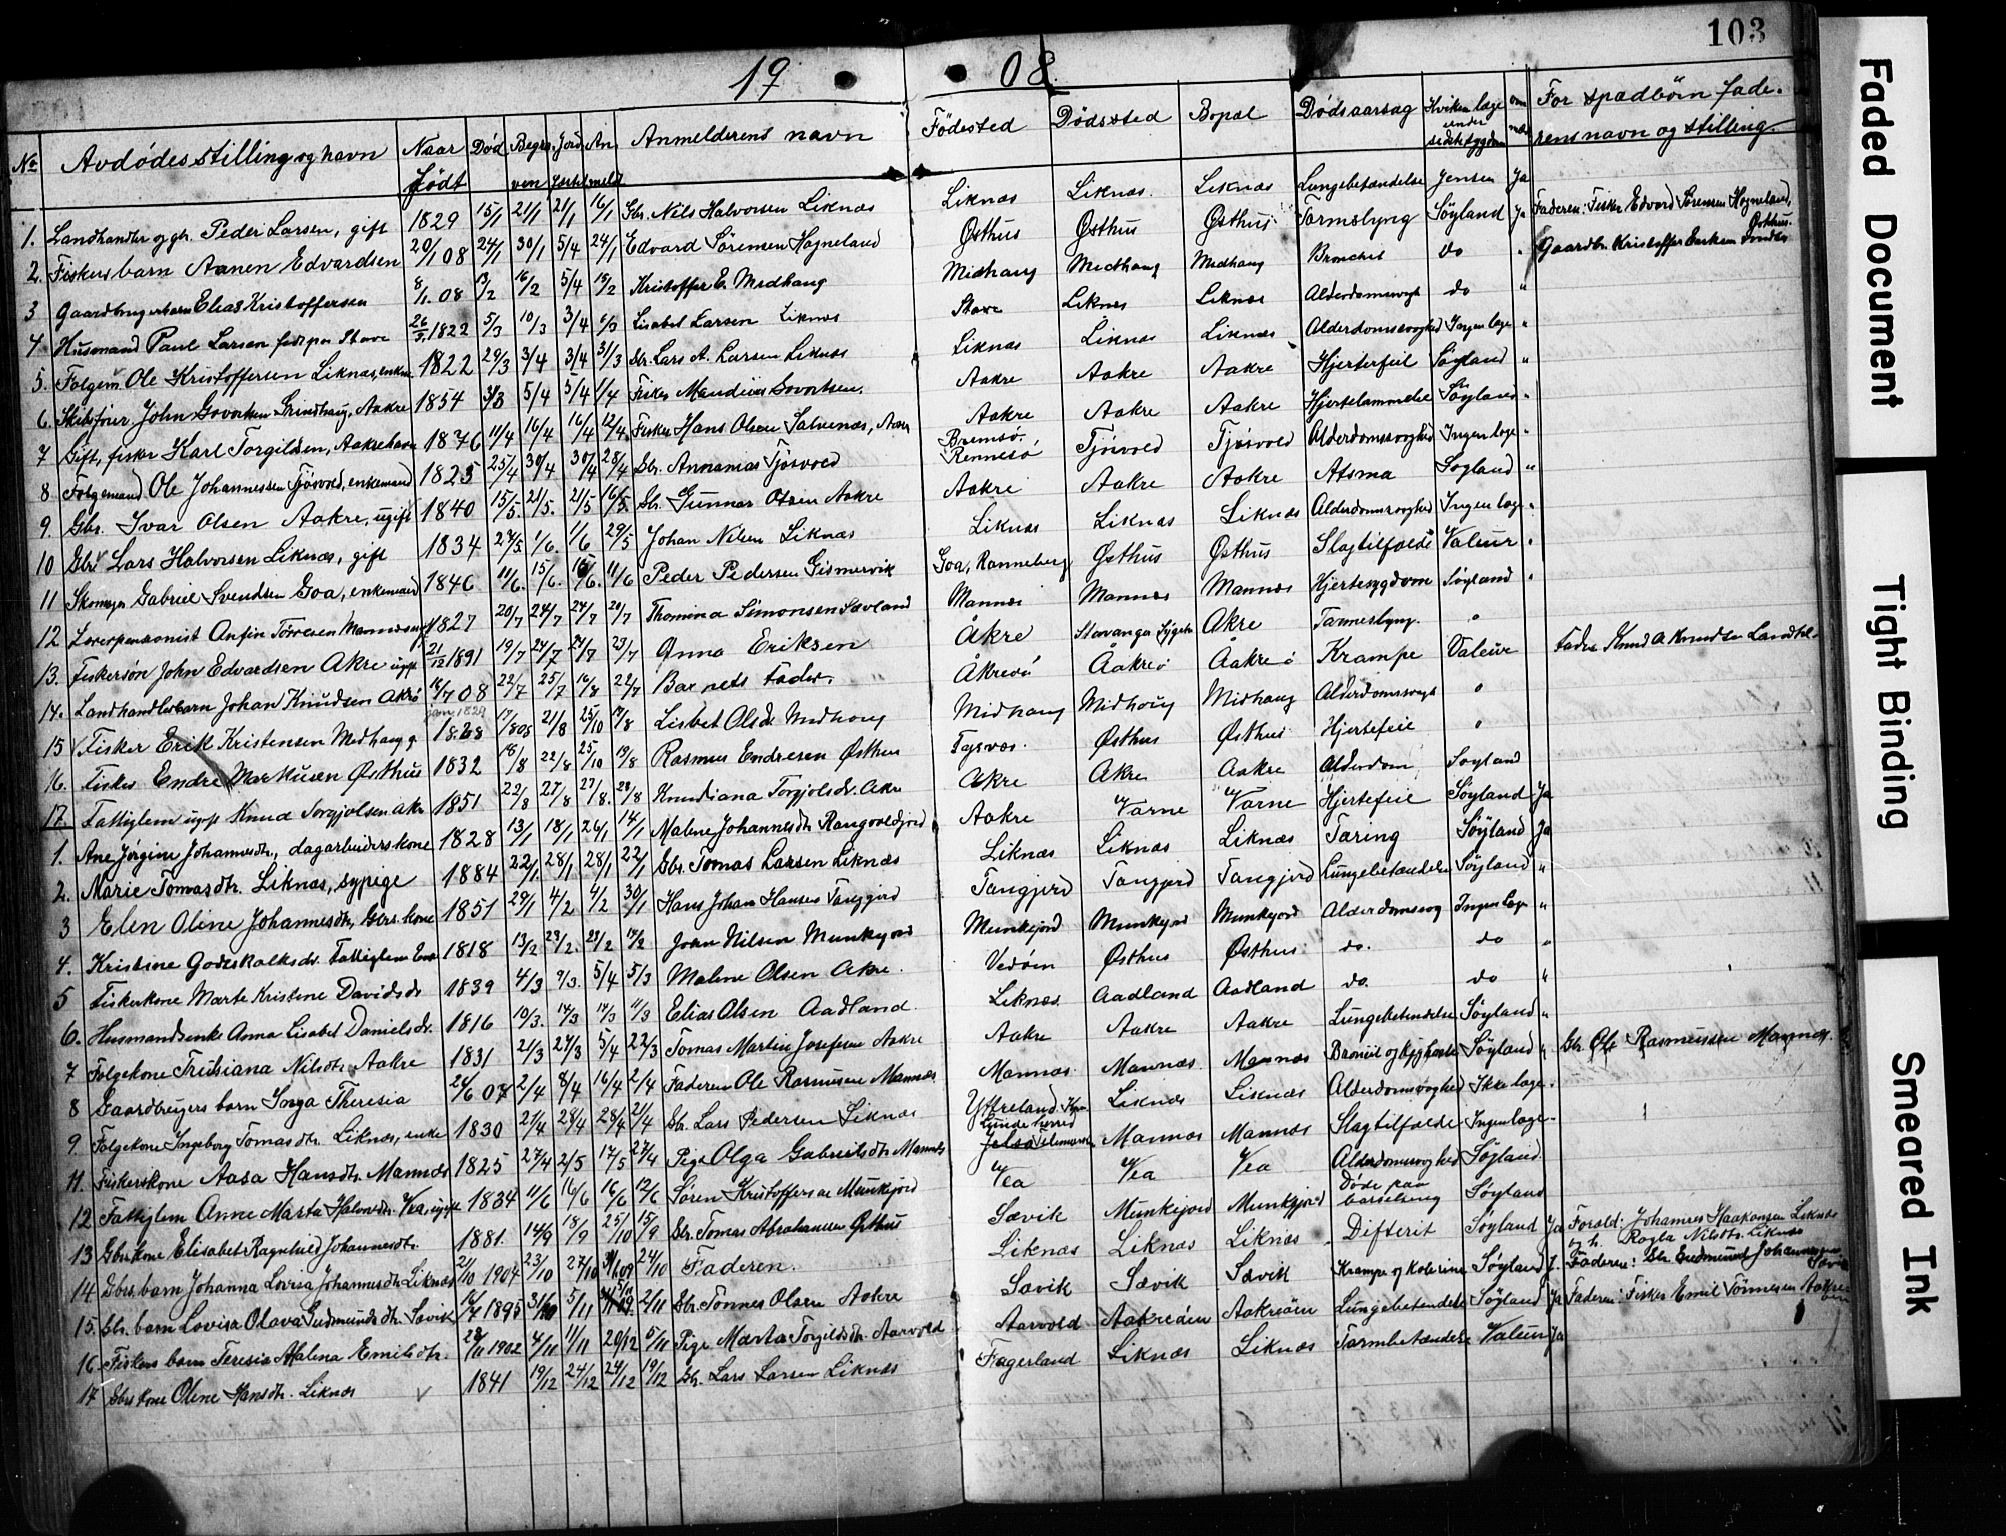 103
19 08.
No Avdødes stilling og navn Naar født Død Begra. ven Jord. Anmeldt Anmelderens navn Fødested Dødssted Bopæl Dødsaarsag Hvilken læge under sidste sygdom For spædbørn faderens navn og stilling.
1. Landhandler og gbr. Peder Larsen, gift 1829 15/1 21/1 21/1 16/1 Gbr. Nils Halvorsen Liknæs Liknæs Liknæs. Liknæs Lungebetændelse Jensen Ja
2. Fiskers barn Aanen Edvardsen 20/1 08 24/1 30/1 5/4 24/1 Edvard Sørensen Hogneland Østhus Østhus Østhus Tarmslyng Søyland Ja Faderen: Fisker Edvard Sørensen Hogneland, Østhus.
3 Gaardbrugerbarn Elias Kristoffersen 8/1. 08 13/2 16/2 5/4 15/2 Kristoffer E. Medhaug Midhaug Medhaug Medhaug Bronchit do " Gaardbr. Kristoffer
4 Husmand Paul Larsen født paa Stave 1822 5/3 10/3 3/4 6/3 Lisabet Larsen Liknæs Stave Liknæs Liknæs Alderdomssvagh do "
5. Folgem. Ole Kristoffersen Liknæs, enkem 1822 29/3 3/4 3/4 31/3 Gbr. Lars A. Larsen Liknæs Liknæs Liknæs Liknæs Alderdomssvaghed Ingen læge "
6. Skibsfører John Govertsen Grindhaug, Aakre 1854 5/4 5/4 1/4 Fisker Mandius Govertsen. Aakre Aakre Aakre Hjertefeil Søyland "
7 Gift, fisker Karl Torgilsen, Aakrehavn 1876 11/4 16/4 16/4 12/4 Fisker Hans Olsen Salvenæs, Aakre Aakre Aakre Hjertelammelse Søyland "
8 Folgemand Ole Johannessen Tjøsvold, enkemand 1825 25/4 30/4 30/4 28/4 Gbr. Annanias Tjøsvold Bremsø. Rennesø Tjøsvold Tjøsvold Alderdomssvaghed Ingen læge "
9. Gbr. Ivar Olsen Aakre, ugift 1840 15/5. 21/5. 21/5 16/5. Gbr. Gunnar Olsen Aakre Aakre Aakre Aakre Atsma Søyland "
10 Gbr. Lars Halvorsen Liknæs, gift 1834 27/5 1/6. 1/6 29/5 Johan Nilsen Liknæs Liknæs Liknæs Liknæs Alderdomssvaghed Ingen læge "
11 Skomager Gabriel Svendsen Goa, enkemand 1846 11/6. 15/6. 15/6. 11/6 Peder Pedersen Gismervik Goa, Ranneberg Østhus Østhus Slagtilfælde Valeur "
12 Lærerpensionist Anfin Tørresen Mannes 1827 20/7 24/7 24/7 20/7 Thomina Simonsen Sævland Mannes Mannes Mannes Hjertesygdom Søyland "
13. Fiskersøn John Edvardsen Akre ugift 21/12 1891 19/7 24/7 24/7 23/7 Anna Eriksen Åkre Stavanger Sygeh Åkre Tarmeslyng. "
14. Landhandlerbarn Johan Knudsen Akrø 16/7 08 22/7 25/7 16/8 22/7 Barnets Fader. Åkreø Åakreø Åakreø Krampe Valeur Fader Knud A Knudsen Landhdl.
jan 1829
15 Fisker Erik Kristensen Medhaug g. 1828 17/8 08 21/8 25/10 17/8 Lisbet Olsdr Midhaug Midhaug Midhaug Midhaug Alderdomssvagh "
16. Fisker Endre Markusen Østhus 1832 18/8 22/8 25/10 19/8 Rasmus Endresen Østhus Tysvær. Østhus Østhus Hjertefeil "
17. Fattiglem ugift Knud Torgjolsen Akre 1851 22/8 27/8 27/8. 28/8 Knudiana Torgjolsdr. Akre Akre Akre Aakre Alderdom Søyland
1. Ane Jørgine Johannesdtr., dagarbeiderskone 1828 13/1 18/1 26/1 14/1 Malene Johannesdtr Rangvoldgjord Aakre Varne Varne Hjertefeil Søyland Ja
2. Marie Tomasdtr. Liknæs, sypige 1884 22/1. 28/1 28/1 22/1 Gbr. Tomas Larsen Liknæs Liknæs Liknæs Liknæs Tæring Søyland Ja
3 Elen Oline Johannesdtr, Gbrs. kone 1851 29/1 4/2 4/2 30/1 Hans Johan Hansen Tangjerd Tangjerd Tangjerd Tangjerd Lungebetændelse Søyland "
4. Kristine Godeskalksdr. Fattiglem Enke 1818 13/2 23/2. 23/2 14/2 Joan Nilsen Munkejord Munkejord Munkejord Munkejord Alderdomssvag Ingen læge "
5 Fiskerkone Marte Kristine Davidsdr 1839 4/3 9/3. 5/4 5/3 Malene Olsen Akre. Vedøen Østhus Østhus do. do "
6. Husmandsenke Anna Lisabet Danielsdr. 1816 10/3. 14/3 14/3 11/3 Elias Olsen Aadland. Liknæs. Aadland Aadland do. do "
7 Folgekone Trulsiana Nilsdtr Aakre 1831 21/3 27/3 5/4 22/3 Tomas Martin Josefsen Aakre Aakre Aakre Aakre Lungebetændelse Søyland "
8 Gaardbrugers barn Inga Theresia 24/6 07 2/4 8/4 16/4 2/4 Faderen Ole Rasmussen Mannes Mannes. Mannes. Mannes Bronkit og Kighoste Søyland " Gbr. Ole Rasmussen Mannes.
9. Folgekone Ingeborg Tomasdtr. Liknæs, enke 1830 21/4 28/4 28/4 21/4 Gbr. Lars Pedersen Liknæs Ytreland Liknæs Liknæs Alderdomsvaghed Ikke læge "
11. Fiskerskone Aasa Hansdtr. Mannes 1825 27/4 2/5 17/5 27/4 Pige Olga Gabrielsdtr Mannes Lunde herred Telemarken Mannes Mannes Slagtilfælde Ingen læge
12 Fattiglem Anne Marta Halvorsdtr. Vea, ugift 1834 11/6 16/6 16/6 12/6 Søren Kristoffersen Munkejord Vea Vea Vea Alderdomssvaghed Søyland.
13 Gbrs kone Elisabet Ragnhild Johannesdtr. 1881. 14/9 18/9 25/10 15/9 Gbr. Tomas Abrahamsen Østhus Sævik Munkejord Munkejord Døde paa barselseng Søyland
14. Gbrs. barn Johanna Lovisa Johannesdtr Liknæs 21/10 1904 23/10 27/10 24/10 Faderen. Liknæs Liknæs Liknæs. Difterit Søyland Ja Foræld: Johannes Haakonsen Liknæs og h. Ragla Nilsdtr. Liknæs
15. Gbr. barn Lovisa Olava Gudmundsdtr. Sævik 1895 31/10 5/11 2/11 Gbr. Tønnes Olsen Aakre Sævik Sævik Sævik Krampe og Kolerine Søyland J. Faderen: Gbr. Gudmund Johannessen Sævik
16. Fiskers barn Teresia Malena Emilsdtr. 1902 4/11 11/11 20/12 5/11 Pige Marta Torgilsdtr. Aarvold Aarvold Aakreøen Aakreøen Lungebetændelse Søyland Ja Faderen: Fisker Emil Tønnesen Aakreøen
17 Gbrs kone Oline Hansdtr. Liknæs 1841 19/12 24/12 24/12 19/12 Gbr. Lars Larsen Liknæs Fagerland Liknæs Liknæs Tarmbetændelse Valeur Ja
Faded Document
Tight Binding
Smeared Ink